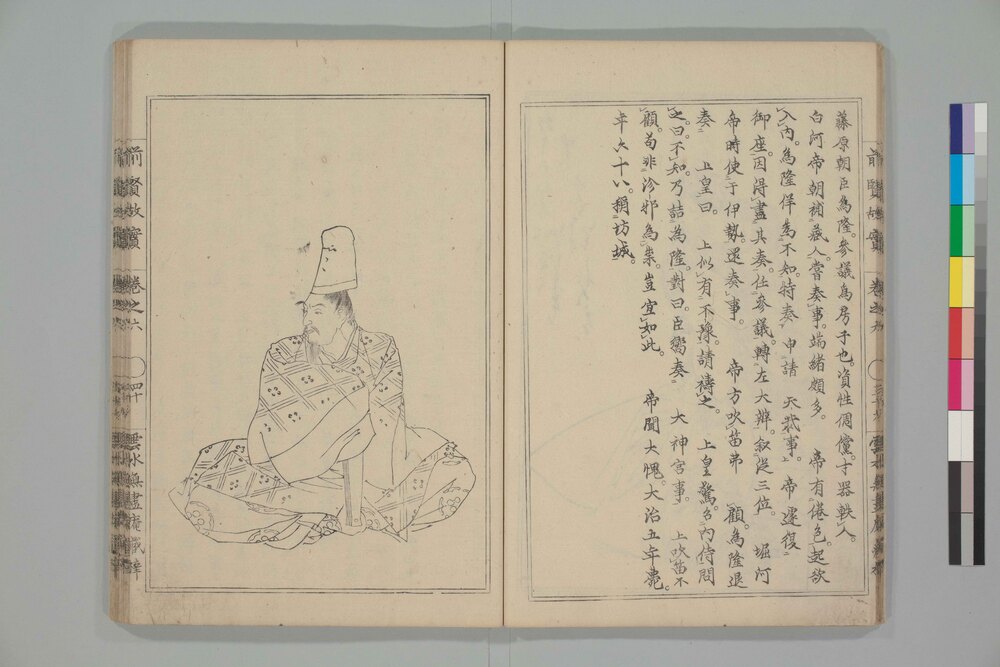 藤原朝臣為隆。參議為房子也。資性倜儻。才器軼人。
白河帝朝補蔵人。嘗奏事。端緒頗多。 帝有倦色。起欲
入内。為隆佯為不知。特奏 申請 天裁事。 帝遂復
御座。因得盡其奏。任參議。轉左大辨。叙從三位。 堀河
帝時使于伊勢。還奏事。 帝方吹笛弗 顧。為隆退
奏 上皇曰。 上似有不豫。請禱之。 上皇驚。召内侍問
之曰。不知。乃詰為隆。對曰。臣嚮奏 大神宮事。 上吹笛不
顧。苟非沴邪為祟。豈宜如此。 帝聞大愧。大治五年薨。
年六十八。稱坊城。
前賢故實 卷之六
前賢故實 卷之六 四十 雲水無盡庵藏梓